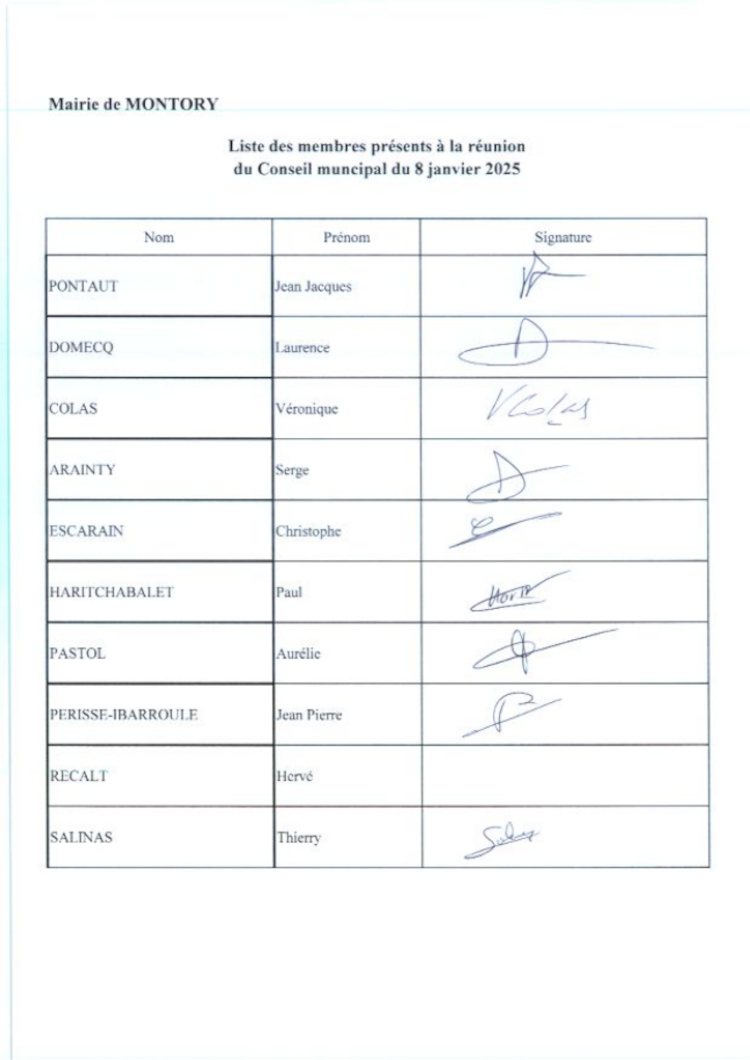 Mairie de MONTORY
Liste des membres présents à la réunion
du Conseil muncipal du 8 janvier 2025
Nom Prénom Signature
PONTAUT Jean Jacques
DOMECQ Laurence
COLAS Véronique VColas
ARAINTY Serge
ESCARAIN Christophe
HARITCHABALET Paul
PASTOL Aurélie
PERISSE-IBARROULE Jean Pierre
RECALT Hervé
SALINAS Thierry